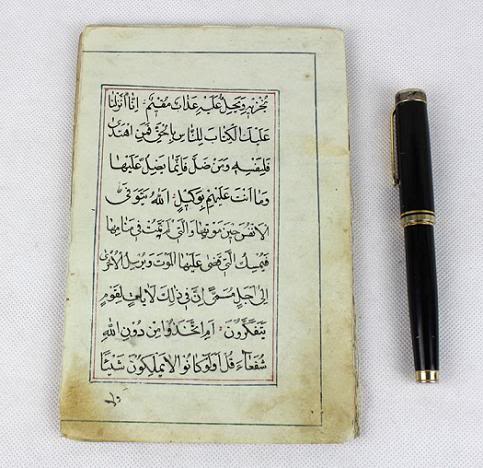 يُخْزِيهِ وَيَحِلُّ عَلَيْهِ عَذَابٌ مُقِيمٌ اِنَّا اَنْزَلْنَا
عَلَيْكَ الْكِتَابَ لِلنَّاسِ بِالْحَقِّ فَمَنِ اهْتَدٰى
فَلِنَفْسِهِ وَمَنْ ضَلَّ فَاِنَّمَا يَضِلُّ عَلَيْهَا
وَمَا اَنْتَ عَلَيْهِمْ بِوَكِيلٍ اَللّٰهُ يَتَوَفَّى
الْاَنْفُسَ حِينَ مَوْتِهَا وَالَّتِي لَمْ تَمُتْ فِي مَنَامِهَا
فَيُمْسِكُ الَّتِي قَضٰى عَلَيْهَا الْمَوْتَ وَيُرْسِلُ الْاُخْرٰى
اِلٰى اَجَلٍ مُسَمًّى اِنَّ فِي ذٰلِكَ لَاٰيَاتٍ لِقَوْمٍ
يَتَفَكَّرُونَ اَمِ اتَّخَذُوا مِنْ دُونِ اللّٰهِ
شُفَعَاءَ قُلْ اَوَلَوْ كَانُوا لَا يَمْلِكُونَ شَيْئًا